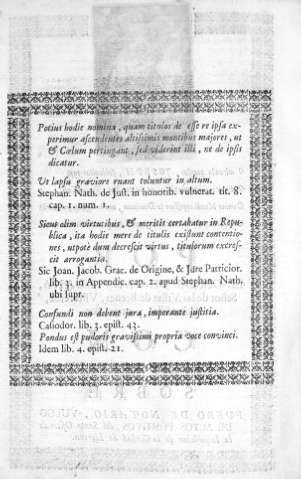 Potius hodie nomina, quam titulos de esse re ipsa ex-
perimur ascendentes altissimis montibus majores, ut
& Cœlum pertingant, sed viderint illi, ne de ipsis
dicatur.
Ut lapsu graviore ruant tolluntur in altum.
Stephan. Nath. de Just. in honorib. vulnerat. tit. 8.
cap. 1. num. 1.
Sicut olim virtutibus, & meritis certabatur in Repu-
blica, ita hodie mere de titulis existunt contentio-
nes, utpotè dum decrescit virtus, titulorum excres-
cit arrogantia.
Sic Joan. Jacob. Grac. de Origine, & Jure Patricior.
lib. 3. in Appendic. cap. 2. apud Stephan. Nath.
ubi supr.
Confundi non debent jura, imperante justitia.
Casiodor. lib. 3. epist. 43.
Pondus est pudoris gravissimi propria voce convinci.
Idem lib. 4. epist. 21.